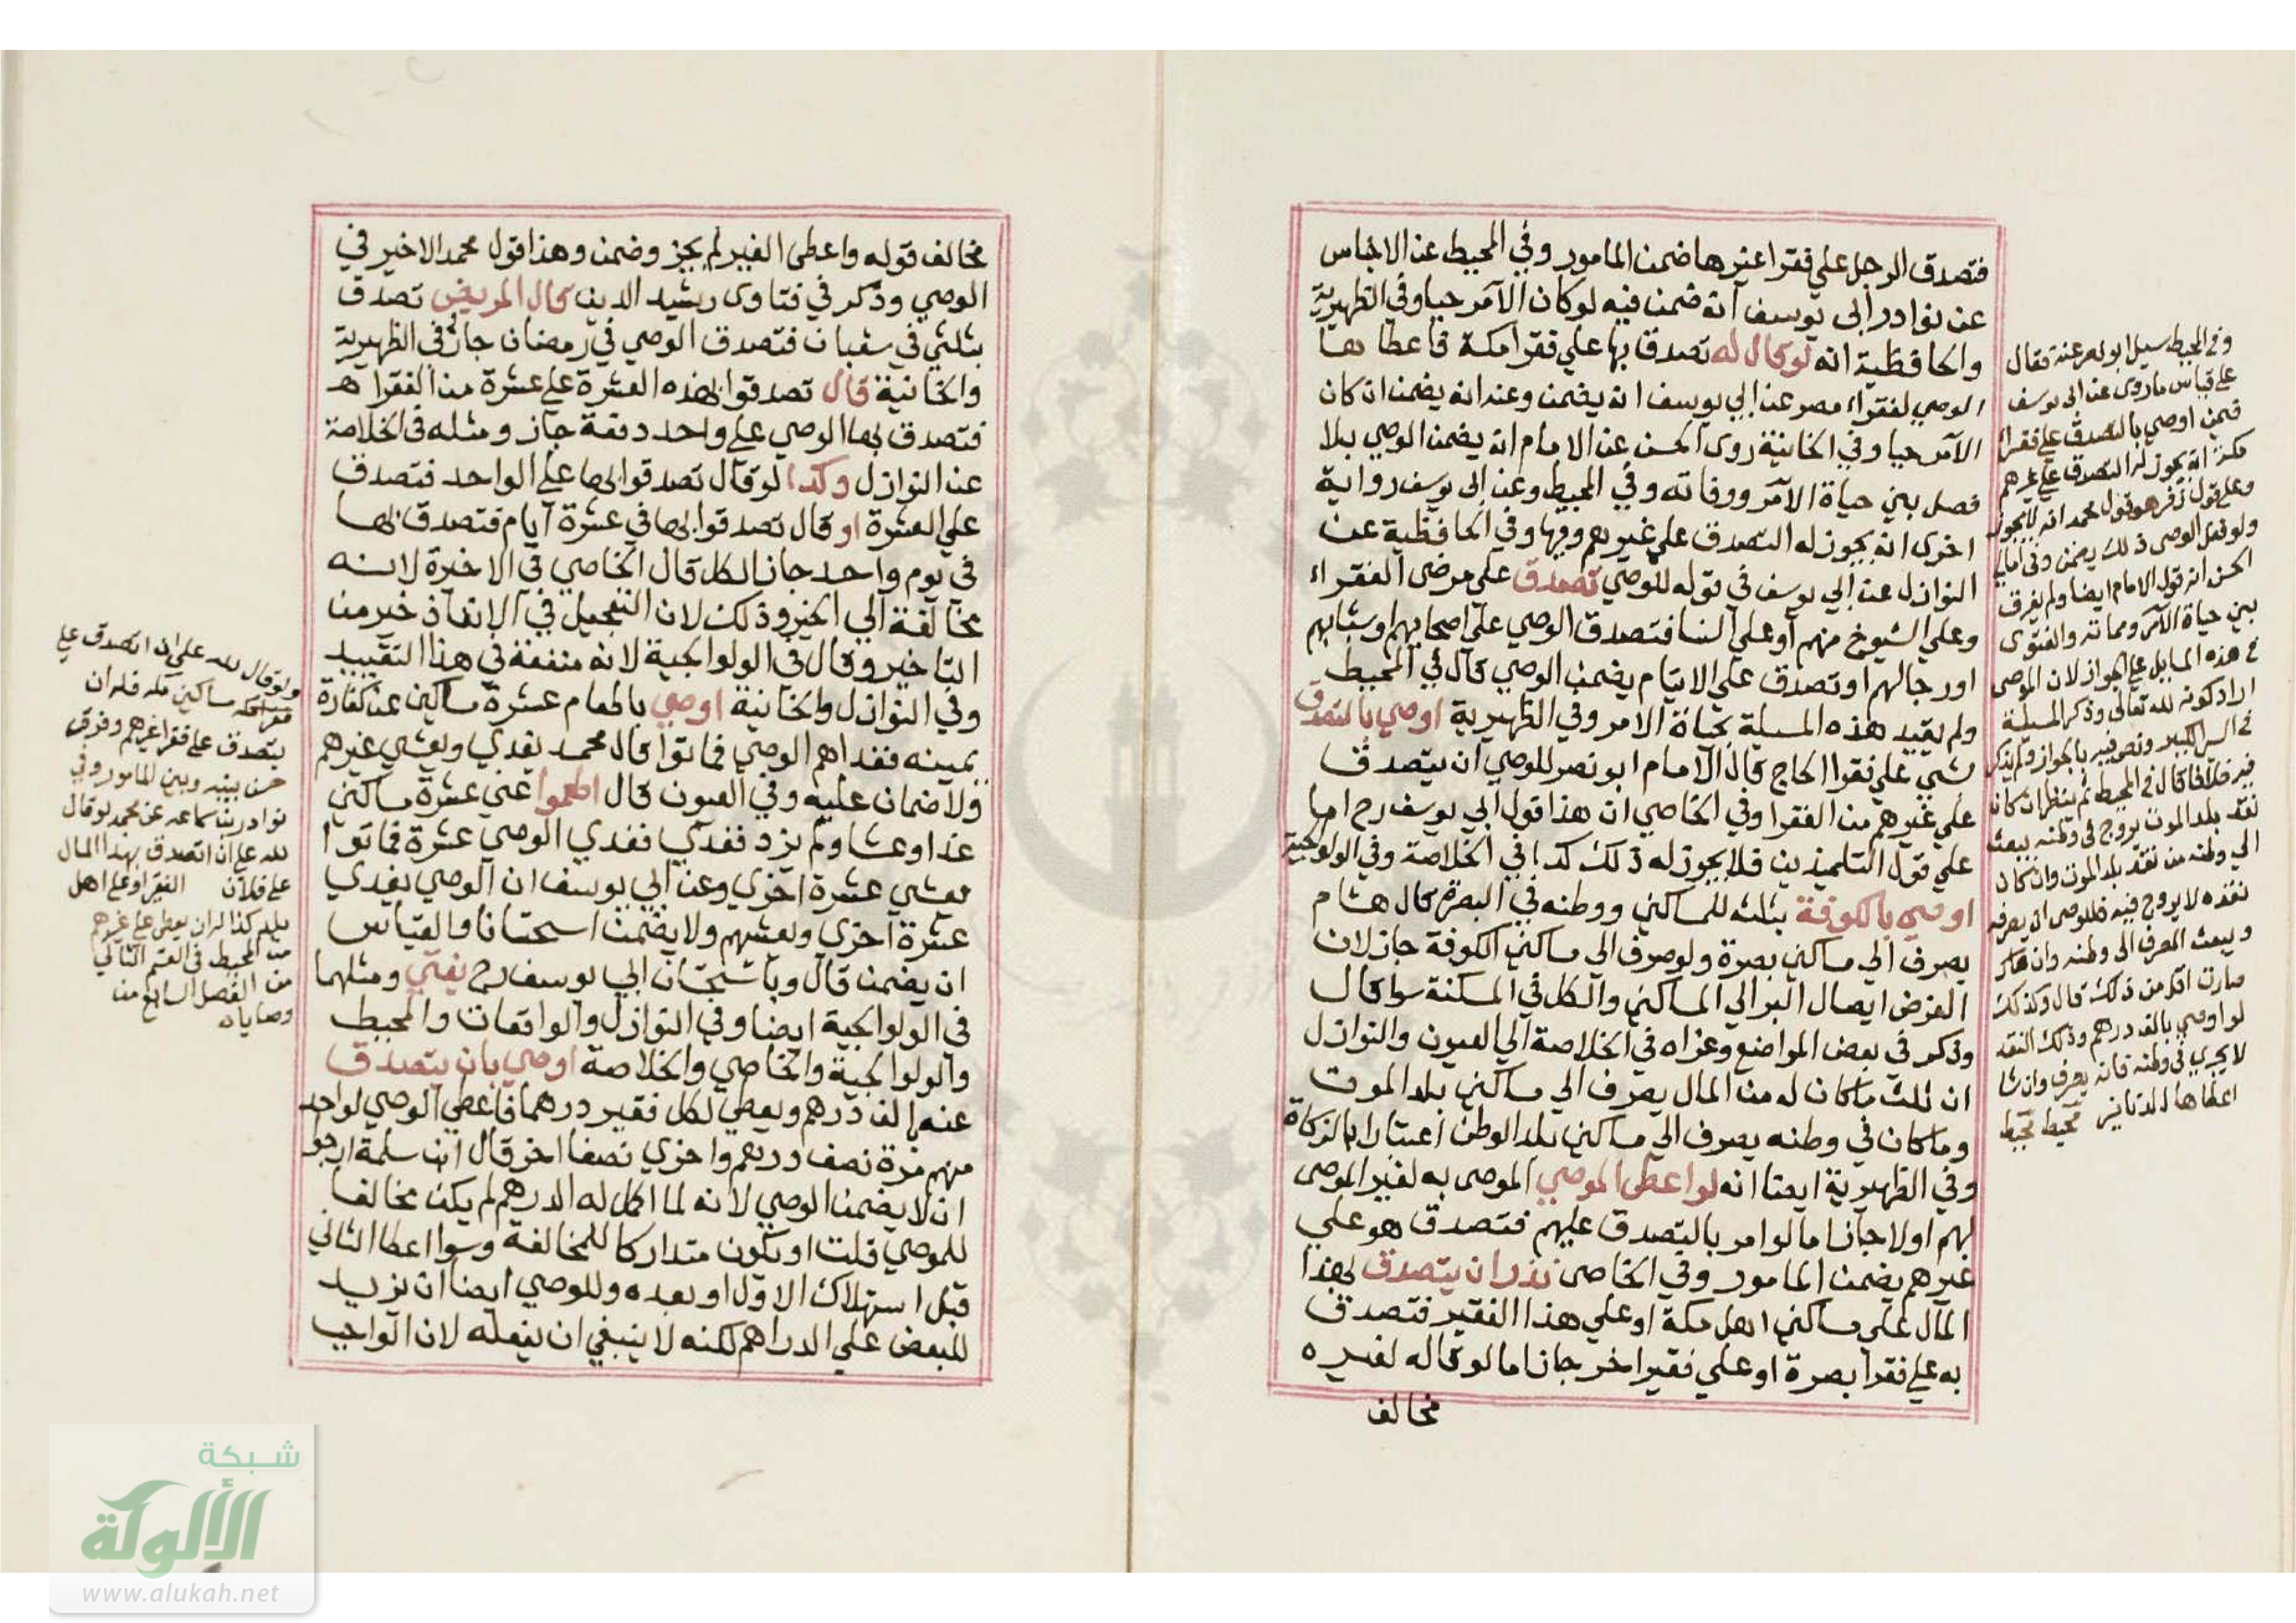 فتصدق الرجل علي فقرا غيرها ضمن المامور وفي المحيط عن الاجناس
عن نوادر ابي يوسف انه ضمن فيه لو كان الآمر حيا وفي الظهيرية
والحافظية انه لو قال له تصدق بها علي فقرا مكة فاعطاها
الوصي لفقراء مصر عن ابي يوسف انه يضمن وعنه انه يضمن ان كان
الآمر حيا وفي الخانية روى الحسن عن الامام انه يضمن الوصي بلا
فصل بين حياة الآمر ووفاته وفي المحيط وعن ابي يوسف رواية
اخرى انه يجوز له التصدق علي غيرهم وفيها وفي الحافظية عن
النوازل عن ابي يوسف في قوله للوصي تصدق علي مرضى الفقراء
وعلي الشيوخ منهم او علي النسا فتصدق الوصي علي اصحابهم او شبابهم
او رجالهم او تصدق علي الايتام يضمن الوصي قال في المحيط
ولم يقيد هذه المسيلة بحياة الامر وفي الظهيرية اوصي بالتصدق
بشيء علي فقرا الحاج قال الامام ابو نصر للوصي ان يتصدق
علي غيرهم من الفقرا وفي الخاصي ان هذا قول ابي يوسف رح اما
علي قول التلميذين فلا يجوز له ذلك كذا في الخلاصة وفي الولوالجية
اوصي بالكوفة بثلثه للمساكين ووطنه في البصرة قال هشام
يصرف الي مساكين بصرة ولو صرف الي مساكين الكوفة جاز لان
الغرض ايصال البر الي المساكين والكل في المسكنة سوا قال
وذكر في بعض المواضع وعزاه في الخلاصة الي العيون والنوازل
ان ثلث ما كان له من المال يصرف الي مساكين بلد الموت
وما كان في وطنه يصرف الي مساكين بلد الوطن اعتبارا بالزكاة
وفي الظهيرية ايضا انه لو اعطى الموصي الموصى به لغير الموصى
لهم اولا جاز اما لو امر بالتصدق عليهم فتصدق هو علي
غيرهم يضمن المامور وفي الخاصى نذر ان يتصدق بهذا
المال علي مساكين اهل مكة او علي هذا الفقير فتصدق
به علي فقرا بصرة او علي فقير اخر جاز اما لو قاله لغيره
مخالف
وفي المحيط سيل ابو نصر عنه فقال
على قياس ما روى عن ابى يوسف
فيمن اوصي بالتصدق على فقراء
مكة انه يجوز له التصدق على غيرهم
وعلى قول زفر وهو قول محمد انه لا يجوز
ولو فعل الوصى ذلك يضمن وفى امالى
الحسن انه قول الامام ايضا ولم يفرق
بين حياة الآمر ومماته والفتوى
فى هذه المسايل على الجواز لان الموصى
اراد كونه لله تعالى وذكر المسيلة
فى السير الكبير ونص فيه بالجواز ولم يذكر
فيه خلافا قال فى المحيط ثم ينظر ان كان
نقد بلد الموت يروج فى وطنه يبعث
الي وطنه من نقد بلد الموت وان كان
نقده لا يروج فيه فللوصى ان يصرفه
ويبعث الصرف الى وطنه وان
صارت اقل من ذلك قال وكذلك
لو اوصي بالف درهم وذلك النقد
لا يجري فى وطنه فانه يصرف وان شا
اعطاها الدنانير محيط محيط
مخالف قوله واعطى الغير لم يجز وضمن وهذا قول محمد الاخير في
الوصي وذكر في فتاوى رشيد الدين قال المريض تصدق
بثلثي في شعبان فتصدق الوصي في رمضان جاز في الظهيرية
والخانية قال تصدقوا بهذه العشرة على عشرة من الفقراه
فتصدق بها الوصي على واحد دفعة جاز ومثله في الخلاصة
عن النوازل وكذا لو قال تصدقوا بها على الواحد فتصدق
علي العشرة او قال تصدقوا بها في عشرة ايام فتصدق بها
في يوم واحد جاز الكل قال الخاصي في الاخيرة لانه
مخالفة الي الخير وذلك لان التعجيل في الانفاذ خير من
التاخير وقال في الولوالجية لانه منفعة في هذا التقييد
وفي النوازل والخانية اوصي باطعام عشرة مساكين عن كفارة
يمينه فغداهم الوصي فماتوا قال محمد يغدي ويعشي غيرهم
ولا ضمان عليه وفي العيون قال اطعموا عني عشرة مساكين
غدا وعشا ولم يزد فغدي فغدي الوصي عشرة فماتوا
يعشي عشرة اخري وعن ابي يوسف ان الوصي يغدي
عشرة اخري ويعشيهم ولا يضمن استحسانا والقياس
ان يضمن قال وباستحسان ابي يوسف رح يفتي ومثلهما
في الولوالجية ايضا وفي النوازل والواقعات والمحيط
والولوالجية والخاصي والخلاصة اوصي بان يتصدق
عنه الف درهم ويعطي لكل فقير درهما فاعطي الوصي لواحد
منهم مرة نصف درهم واخري نصفا اخر قال ابن سلمة ارجو
ان لا يضمن الوصي لانه لما اكمل له الدرهم لم يكن مخالفا
للموصي قلت او يكون متداركا للمخالفة وسوا اعطا الثاني
قبل استهلاك الاول او بعده وللوصي ايضا ان يزيد
للبعض علي الدراهم لكنه لا ينبغي ان يفعله لان الواجب
ولو قال لله على ان اتصدق على
مساكين مكه فله ان
يتصدق على فقرا غيرهم وفرق
حسن بينه وبين المامور وفي
نوادر بن سماعه عن محمد لو قال
لله على ان اتصدق بهذا المال
على فلان الفقير او على اهل
بلد كذا له ان يعطى على غيرهم
من المحيط في القسم الثاني
من الفصل السابع من
وصاياه
شبكة
الألوكة
www.alukah.net